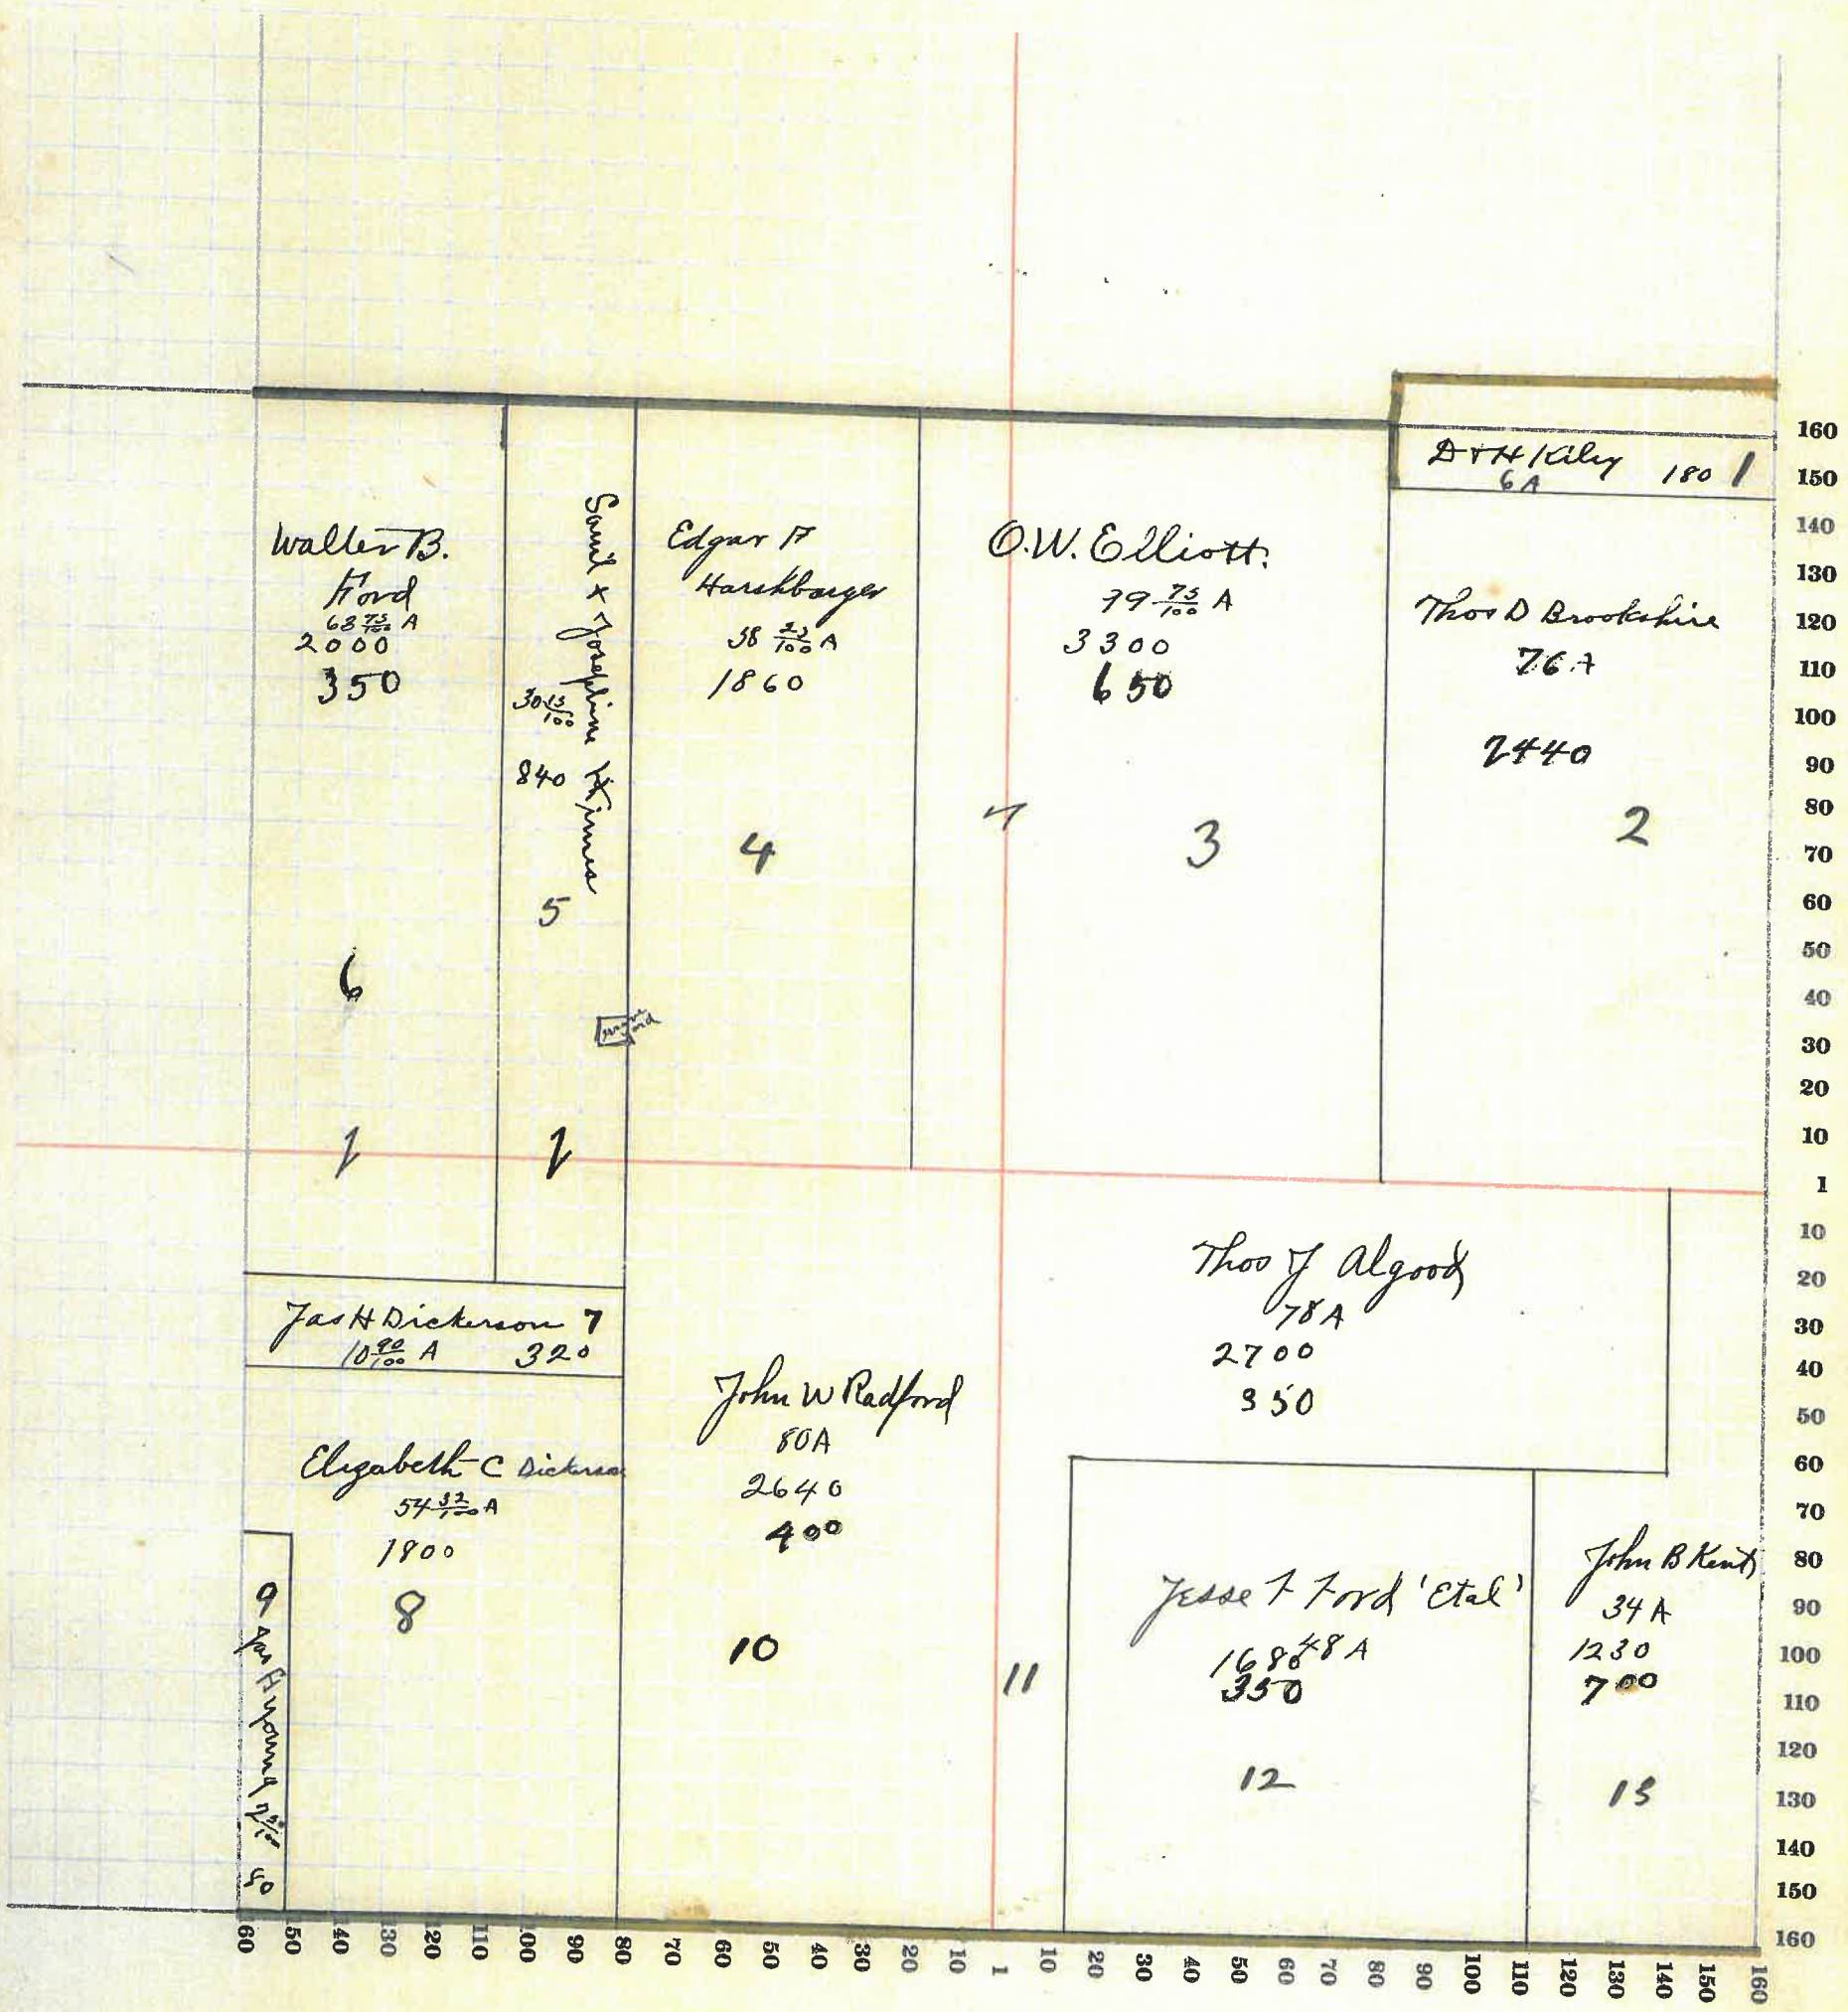 D + H Kiley 180 1
6 A
Walter B.
Ford
63 75/100 A
2000
350
6
1
Saml + Josephine Himes
30 13/100
840
5
1
Edgar F
Harshbarger
38 23/100 A
1860
4
O.W. Elliott.
79 75/100 A
3300
650
3
Thos D Brookshire
76 A
2440
2
Jas H Dickerson 7
10 90/100 A 320
Elizabeth C Dickerson
54 32/100 A
1800
8
9 Jas H Young 50
John W Radford
80 A
2640
400
10
Thos J Algood
78 A
2700
350
11
Jesse F Ford 'Etal'
48 A
1680
350
12
John B Kent
34 A
1230
700
13
160
150
140
130
120
110
100
90
80
70
60
50
40
30
20
10
1
10
20
30
40
50
60
70
80
90
100
110
120
130
140
150
160
60
50
40
130
120
110
100
90
80
70
60
50
40
30
20
10
1
10
20
30
40
50
60
70
80
90
100
110
120
130
140
150
160